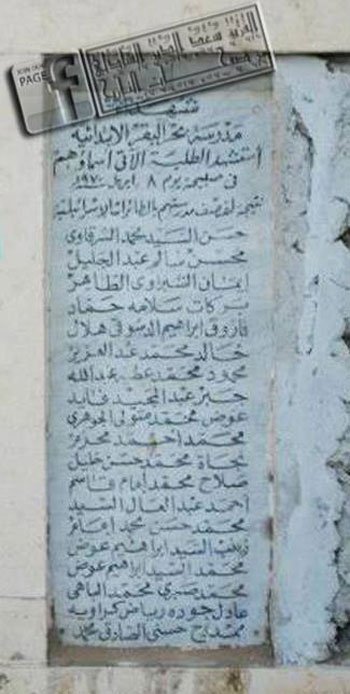 JOIN OUR
PAGE
f
شهداء
مدرسة بحر البقر الابتدائيه
استشهد الطلبة الآتى أسماؤهم
فى صبيحة يوم ٨ ابريل ١٩٧٠
نتيجة لقصف مدرستهم بالطائرات الاسرائيلية
حسن السيد محمد الشرقاوى
محسن سالم عبد الجليل
إيمان الشبراوى الطاهر
بركات سلامه حماد
فاروق ابراهيم الدسوقى هلال
خالد محمد عبد العزيز
محمود محمد عطيه عبد الله
جبر عبد المجيد فايد
عوض محمد متولى الجوهرى
محمد احمد محرم
نجاة محمد حسن خليل
صلاح محمد امام قاسم
احمد عبد العال السيد
محمد حسن محمد إمام
زينب السيد ابراهيم عوض
محمد السيد ابراهيم عوض
محمد صبرى محمد الباهى
عادل جوده رياض كراويه
ممدوح حسنى الصادق محمد